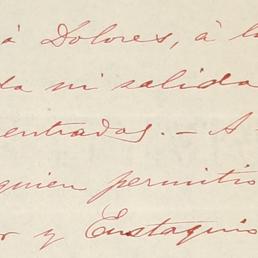 á Dolores, á l
da ni salida
entradas. — A
quien permitio
r y Eustaquio